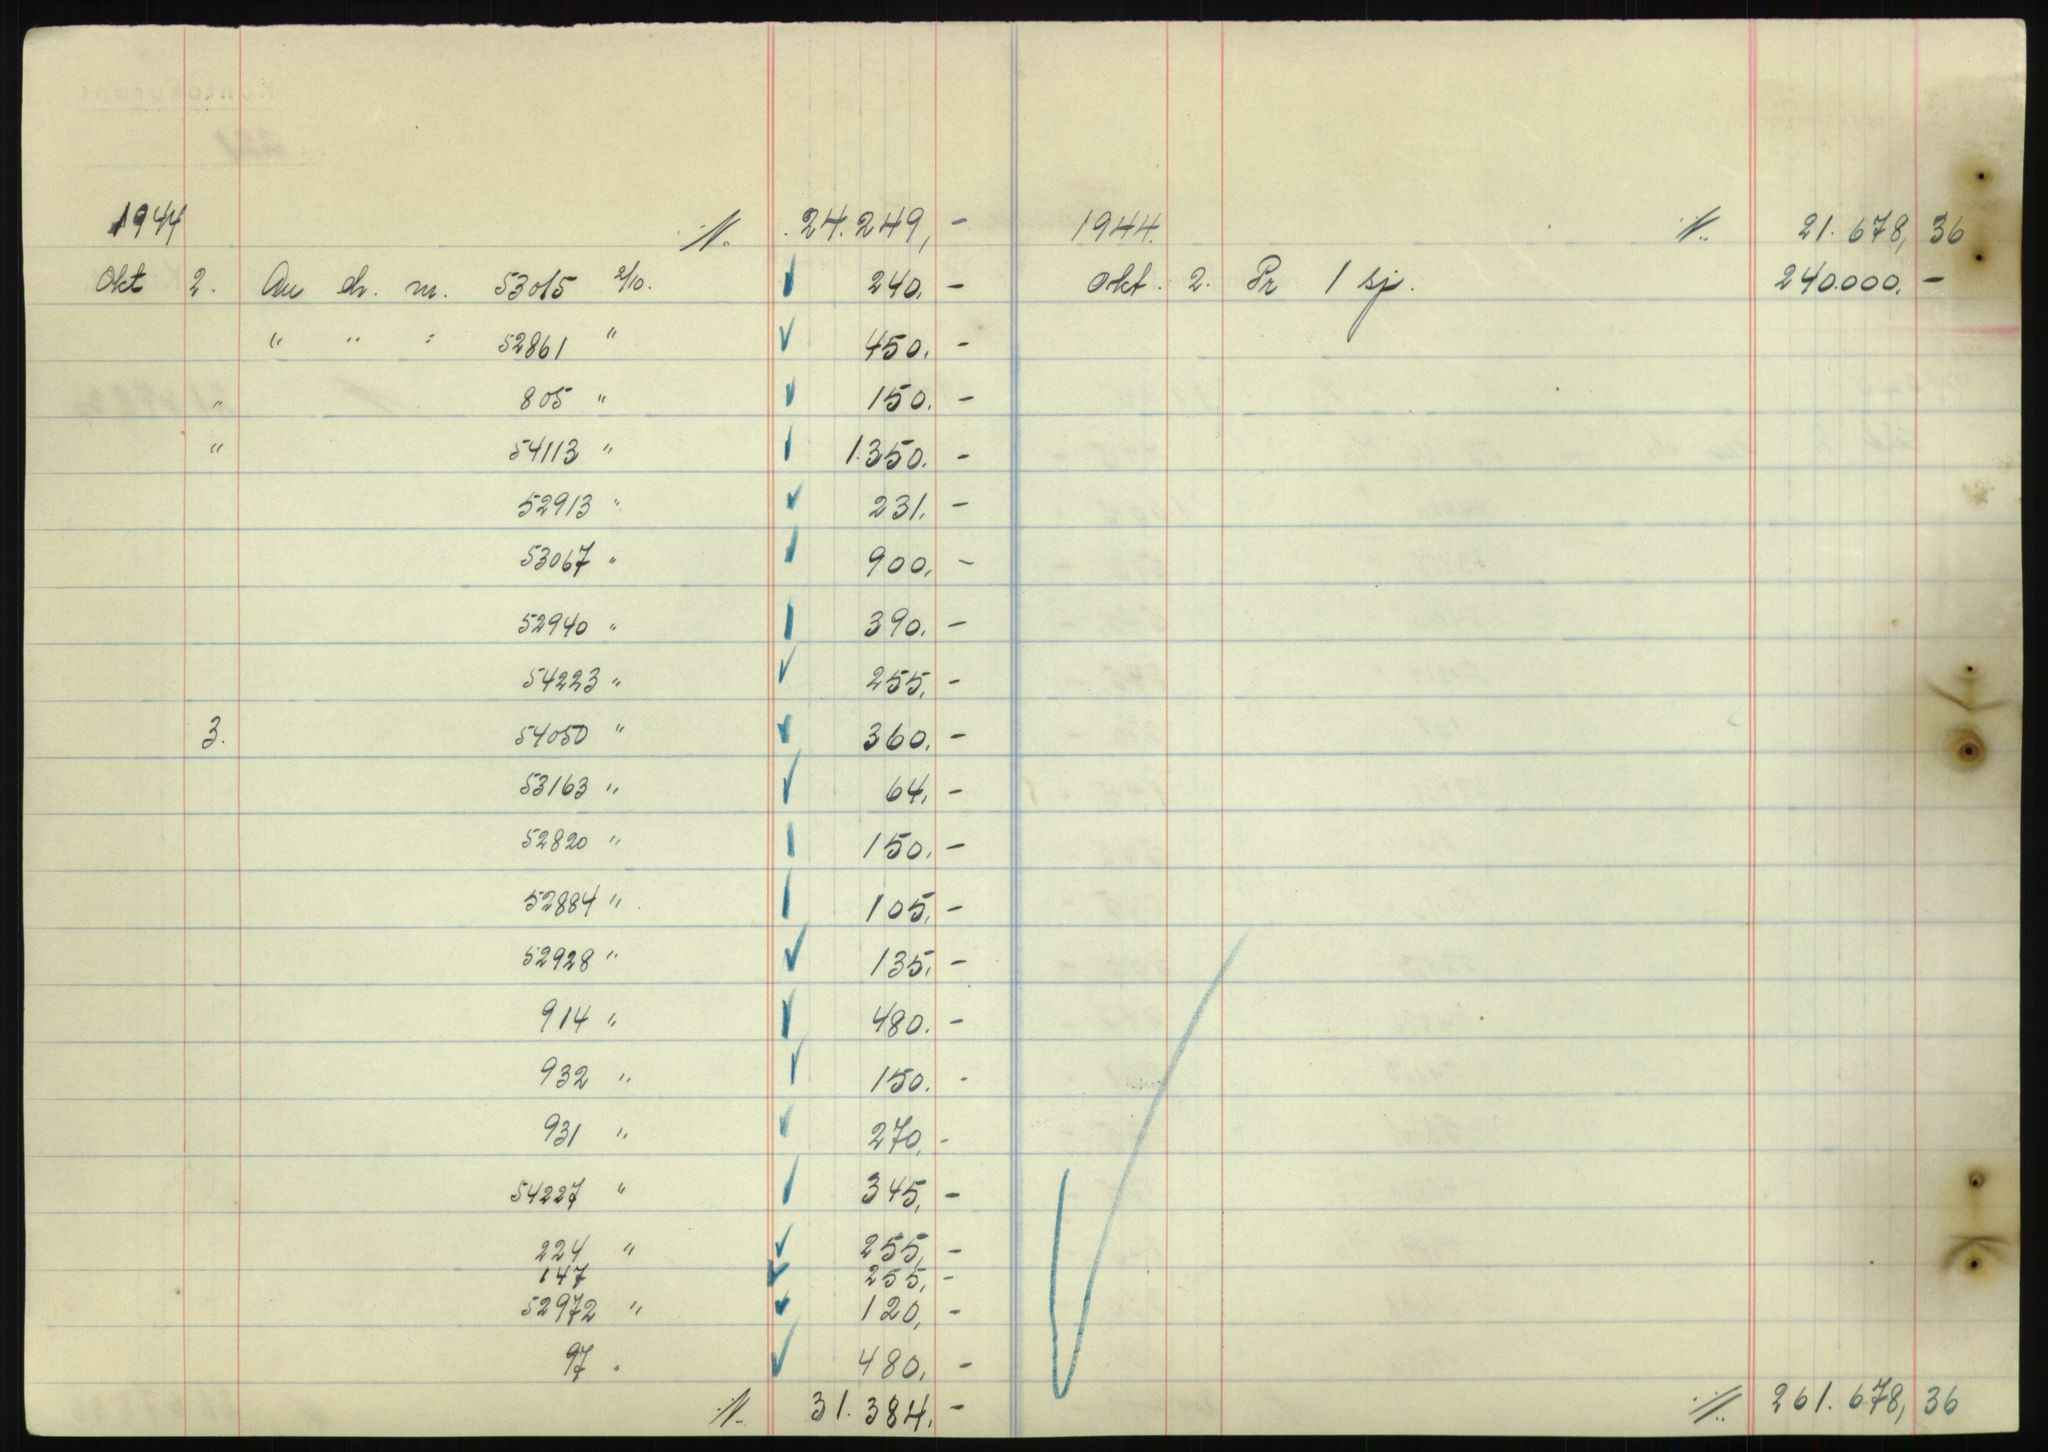 1944 ·/. 24.249,-
Okt 2. An ch. nr. 53015 2/10. 240,-
" " " 52861 " 450,-
" 805 " 150,-
" 54113 " 1.350,-
52913 " 231,-
53067 " 900,-
52940 " 390,-
54223 " 255,-
3. 54050 " 360,-
53163 " 64,-
52820 " 150,-
52884 " 105,-
52928 " 135,-
914 " 480,-
932 " 150.-
931 " 270,-
54227 " 345,-
224 " 255,-
147 255,-
52972 " 120,-
97 " 480,-
·/. 31.384,-
1944. ·/. 21.678,36
Okt. 2. Pr 1 sj. 240.000,-
·/. 261.678,36